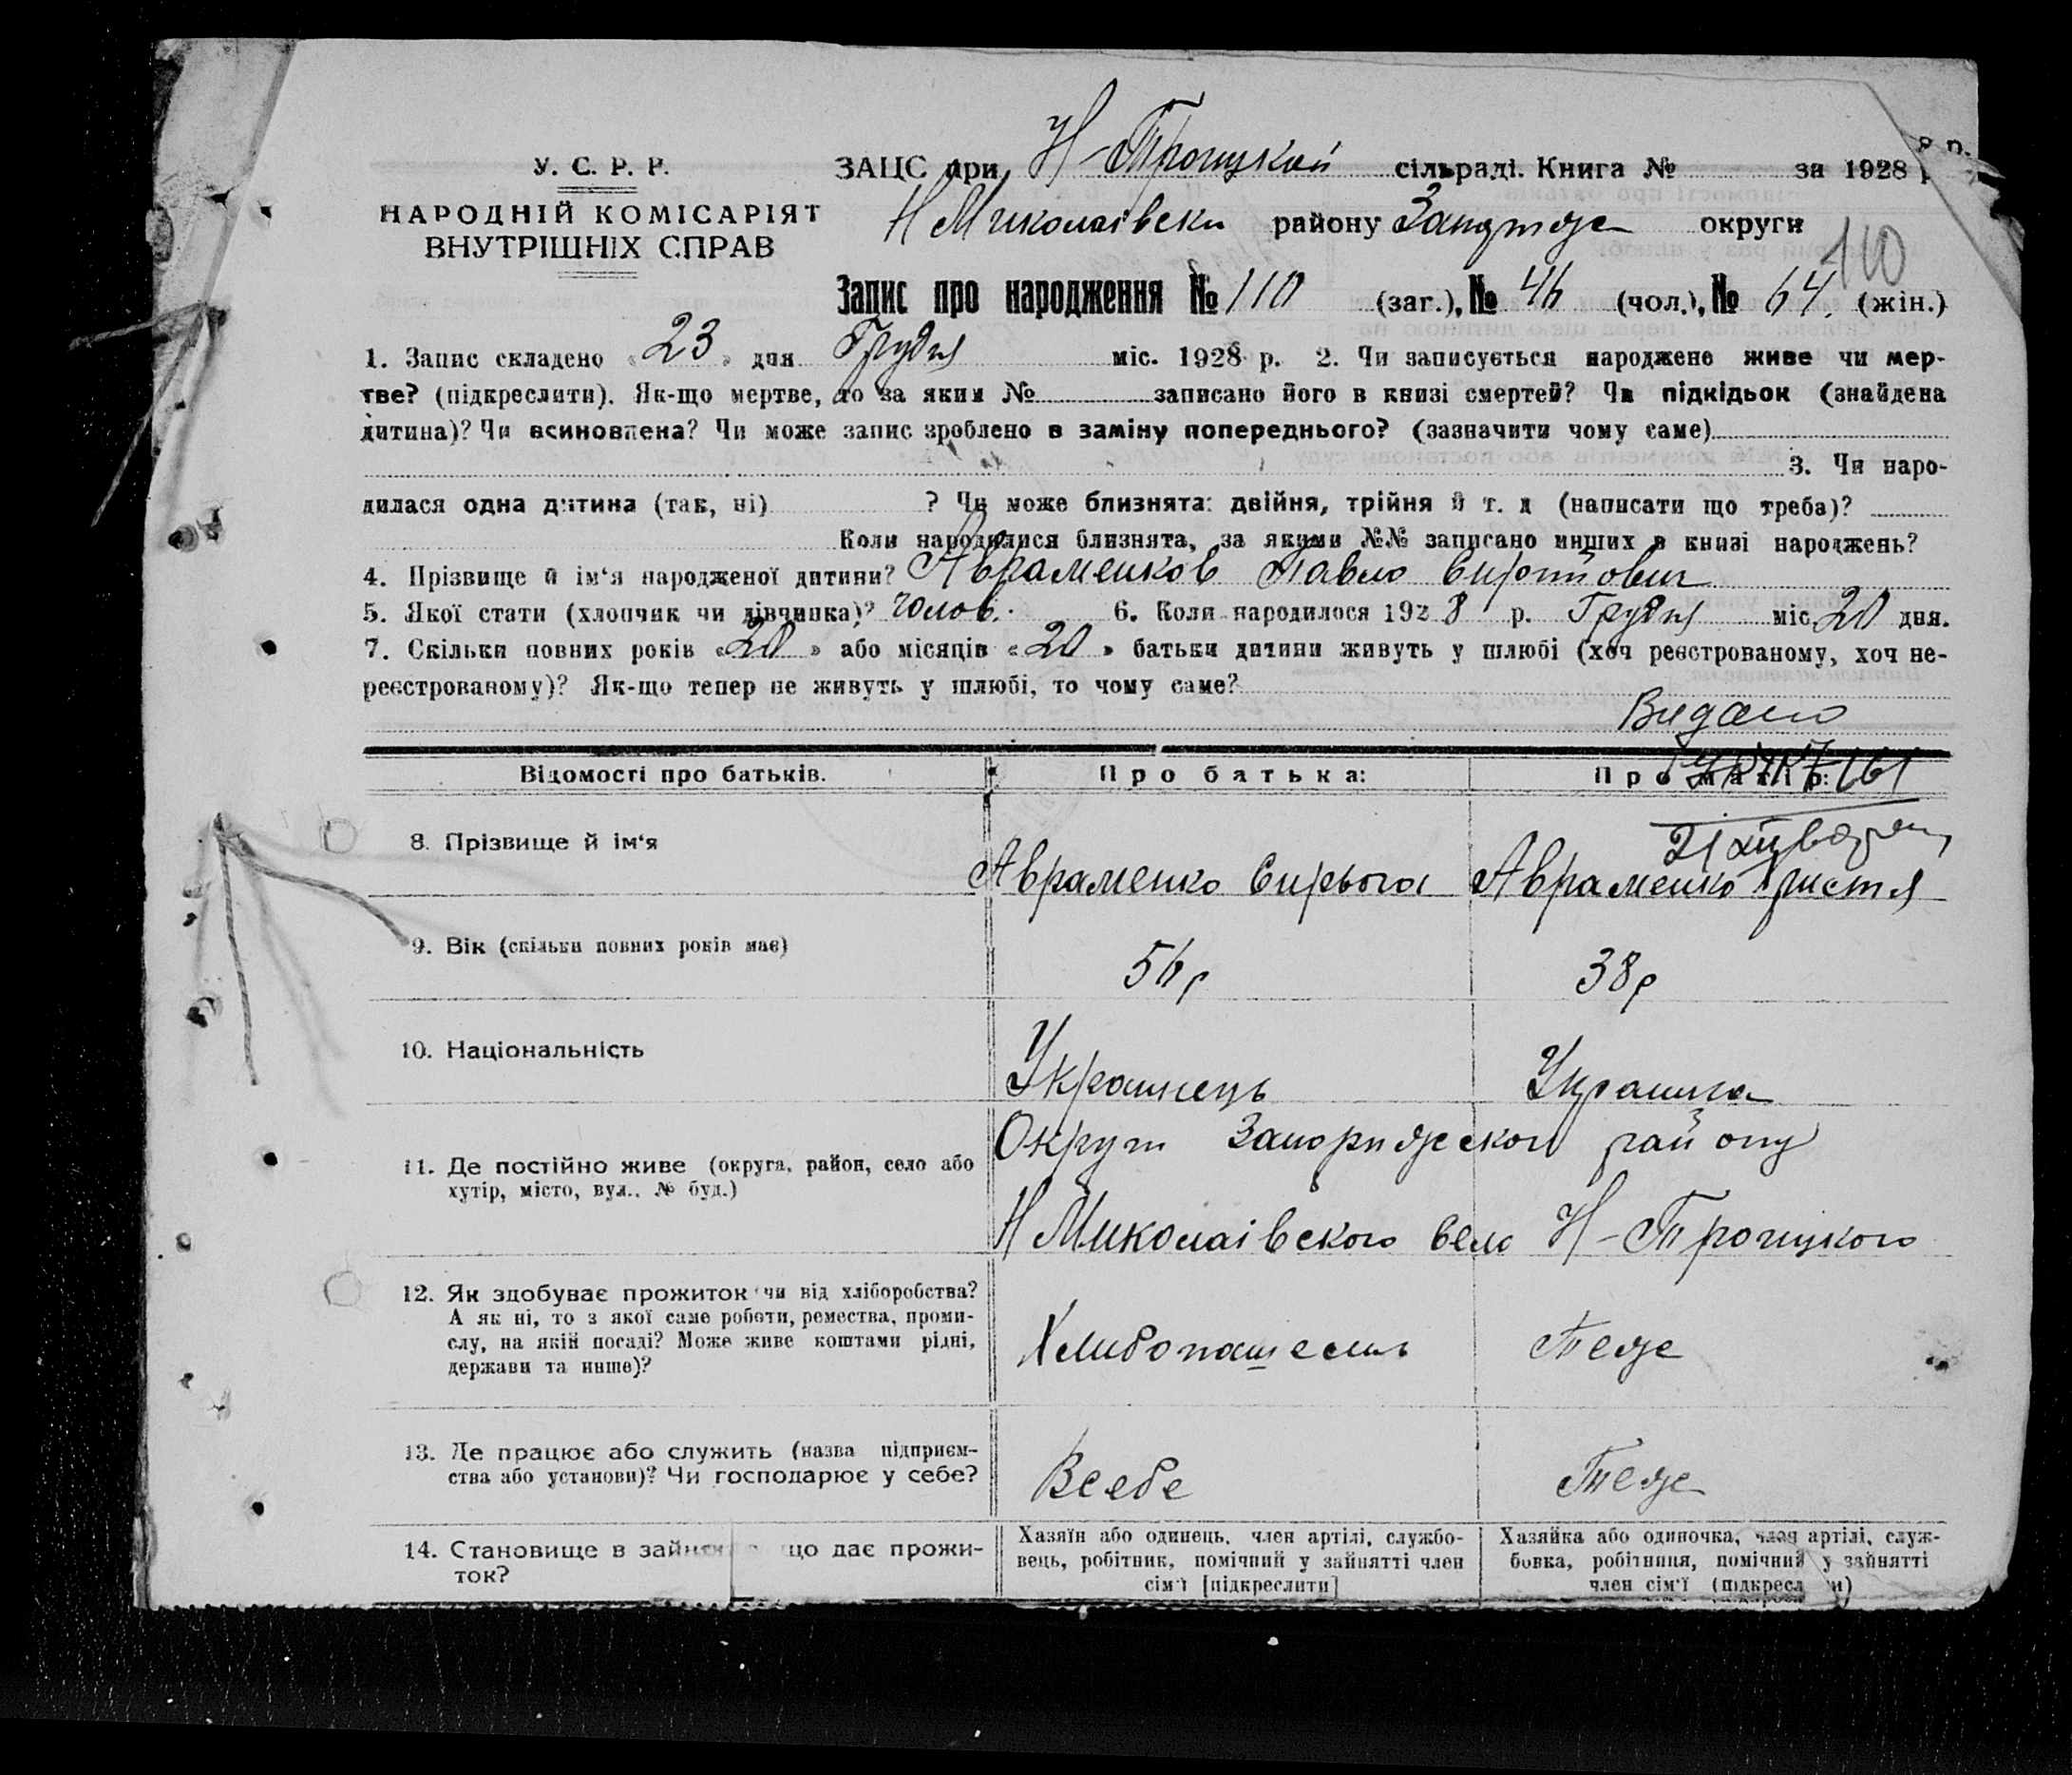 У. С. Р. Р.
НАРОДНІЙ КОМІСАРІЯТ
ВНУТРІШНІХ СПРАВ
ЗАЦС при Н-Троицкой сільраді. Книга № за 1928
Н Миколаівски району округи
110
Запис про народження № 110 (заг.), № 46 (чол.), № 64. (жін.)
1. Запис складено « 23 » дня Грудня міс. 1928 р. 2. Чи записується народжене живе чи мер-
тве? (підкреслити). Як-що мертве, то за яким № записано його в книзі смертей? Чи підкідьок (знайдена
дитина)? Чи всиновлена? Чи може запис зроблено в заміну попереднього? (зазначити чому саме)
3. Чи наро-
дилася одна дитина (так, ні) ? Чи може близнята: двійня, трійня й т. д (написати що треба)?
Коли народилися близнята, за якими №№ записано инших в книзі народжень?
4. Прізвище й ім‘я народженої дитини? Авраменков Павло
5. Якої стати (хлопчик чи дівчинка)? чолов. 6. Коли народилося 1928 р. Грудня міс. 20 дня.
7. Скільки повних років «20» або місяців «20» батьки дитини живуть у шлюбі (хоч реєстрованому, хоч не-
реєстрованому)? Як-що тепер не живуть у шлюбі, то чому саме?
Видано
Відомості про батьків. Про батька: Про матір:
8. Прізвище й ім‘я
Авраменко Авраменко Христя
9. Вік (скільки повних років має)
56р 38р
10. Національність
Украинець Украинка
11. Де постійно живе (округа, район, село або
хутір, місто, вул., № буд.)
Округи району
Н Миколаівского село Н-Троицкого
12. Як здобуває прожиток чи від хліборобства?
А як ні, то з якої саме роботи, ремества, проми-
слу, на якій посаді? Може живе коштами рідні,
держави та инше)?
Теже
13. Де працює або служить (назва підприєм-
ства або установи)? Чи господарює у себе?
Всебе Теже
14. Становище в що дає прожи-
ток?
Хазяїн або одинець, член артілі, службо-
вець, робітник, помічний у зайнятті член
сім‘ї [підкреслити]
Хазяйка або одиночка, член артілі, служ-
бовка, робітниця, помічний у зайнятті
член сім‘ї